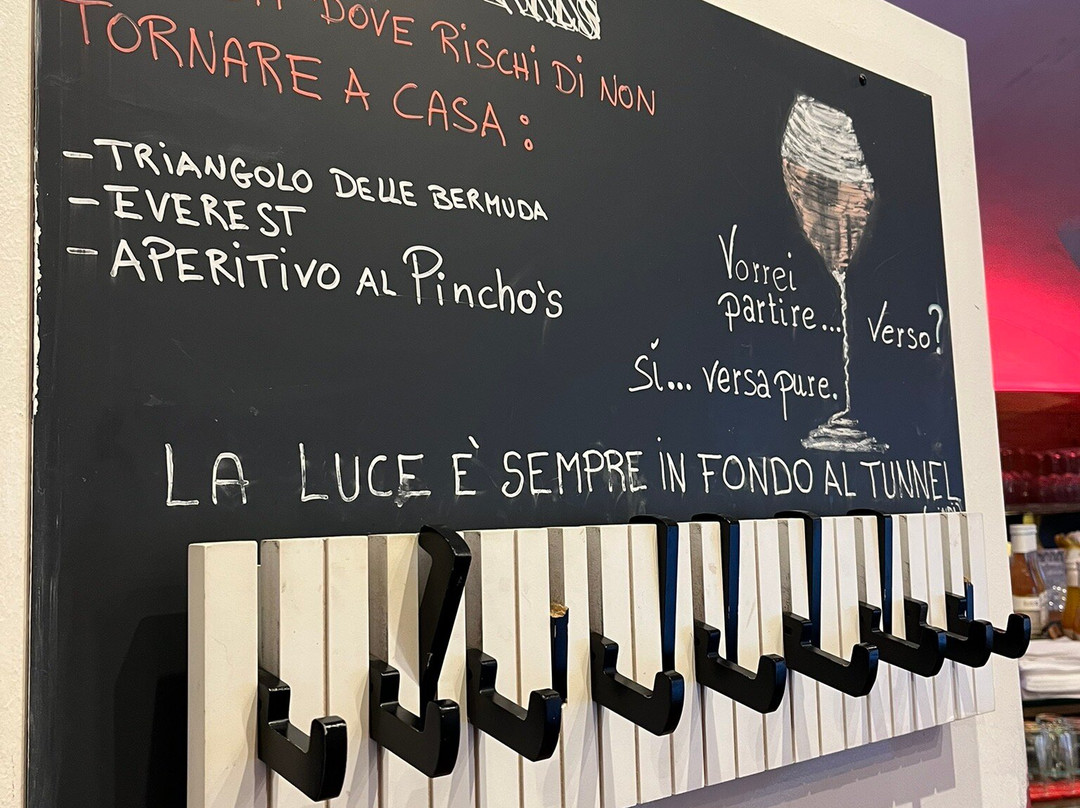 DOVE RISCHI DI NON
TORNARE A CASA:
- TRIANGOLO DELLE BERMUDA
- EVEREST
- APERITIVO AL Pincho's
Vorrei
partire...
Verso?
Sí... versa pure.
LA LUCE È SEMPRE IN FONDO AL TUNNEL